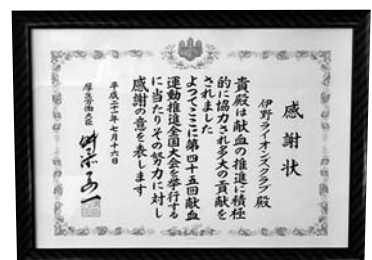 感謝状
伊野ライオンズクラブ殿
貴殿は献血の推進に積極
的に協力され多大の貢献を
されました
よってここに第四十五回献血
運動推進全国大会を挙行する
に当たりその努力に対し
感謝の意を表します
平成二十一年七月十六日
厚生労働大臣
舛添要一